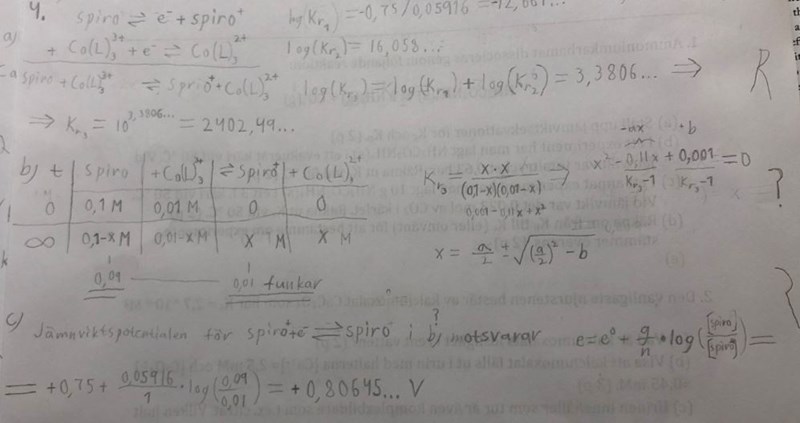 4. spiro ⇌ e⁻ + spiro⁺ log(Kr₁) = -0,75/0,05916 = -12,6
a) + Co(L)₃³⁺ + e⁻ ⇌ Co(L)₃²⁺ log(Kr₂) = 16,058...
spiro + Co(L)₃³⁺ ⇌ Spiro⁺ + Co(L)₃²⁺ log(Kr₃) = log(Kr₁) + log(Kr₂) = 3,3806... ⇒ R
⇒ Kr₃ = 10^3,3806... = 2402,49...
b) t | Spiro | + Co(L)₃³⁺ | ⇌ Spiro⁺ | + Co(L)₃²⁺
0 | 0,1 M | 0,01 M | 0 | 0
∞ | 0,1-x M | 0,01-x M | x M | x M
0,09 0,01 funkar
Kr₃ = x·x / (0,1-x)(0,01-x) → x² - 0,11x / Kr₃-1 + 0,001 / Kr₃-1 = 0 ?
0,001-0,11x+x²
-ax · b
x = a/2 ± √((a/2)² - b)
c) Jämnviktspotentialen för spiro⁺+e⁻ ⇌ spiro i b) motsvarar e = e⁰ + g/n · log([spiro]/[spiro⁺]) =
?
= +0,75 + 0,05916/1 · log(0,09/0,01) = +0,80645... V